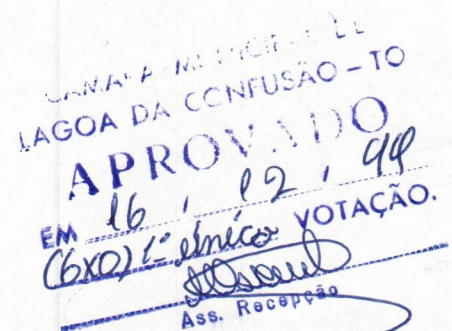 CÂMARA MUNICIPAL DE
LAGOA DA CONFUSÃO – TO
APROVADO
EM 16 / 12 / 99
(6x0) 1º única VOTAÇÃO.
Ass. Recepção